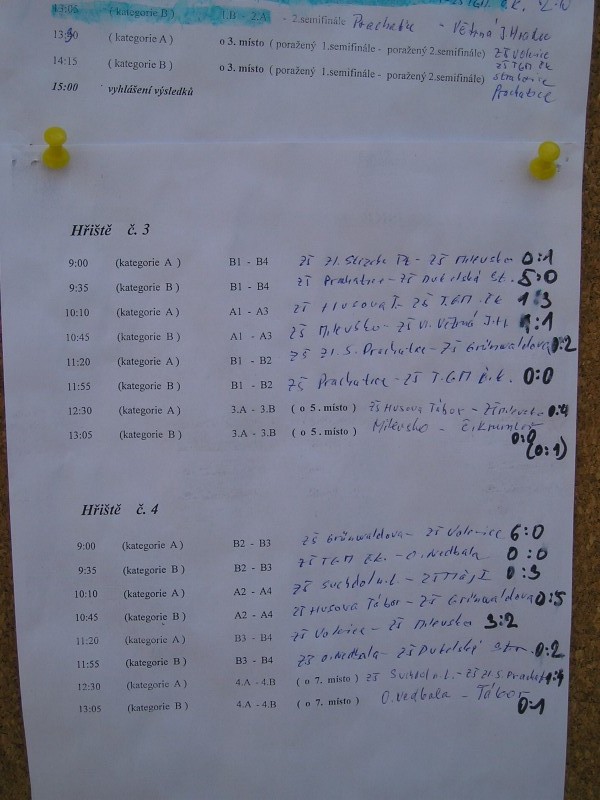 13:05 (kategorie B) 1.B - 2.A - 2.semifinále Prachatice - Větrná J Hradec
13:30 (kategorie A) o 3. místo ( poražený 1.semifinále - poražený 2.semifinále) ZŠ Volenice
ZŠ TGM
14:15 (kategorie B) o 3. místo ( poražený 1.semifinále - poražený 2.semifinále) Strakonice
15:00 vyhlášení výsledků Prachatice
Hřiště č. 3
9:00 (kategorie A ) B1 - B4 ZŠ Zl. Stezka - ZŠ Milevsko 0:1
9:35 (kategorie B ) B1 - B4 ZŠ Prachatice - ZŠ Dukelská St. 5:0
10:10 (kategorie A ) A1 - A3 ZŠ Husova T. - ZŠ TGM 1:3
10:45 (kategorie B ) A1 - A3 ZŠ Milevsko - ZŠ Větrná J.H. 1:1
11:20 (kategorie A ) B1 - B2 ZŠ Zl. S. Prachatice - ZŠ Grünwaldova 0:2
11:55 (kategorie B ) B1 - B2 ZŠ Prachatice - ZŠ TGM 0:0
12:30 (kategorie A ) 3.A - 3.B ( o 5. místo ) ZŠ Husova Tábor - ZŠ Milevsko 0:4
13:05 (kategorie B ) 3.A - 3.B ( o 5. místo ) Milevsko - Č. Krumlov 0:0
(0:1)
Hřiště č. 4
9:00 (kategorie A ) B2 - B3 ZŠ Grünwaldova - ZŠ Volenice 6:0
9:35 (kategorie B ) B2 - B3 ZŠ TGM - O. Nedbala 0:0
10:10 (kategorie A ) A2 - A4 ZŠ Suchdol n.L. - ZŠ Máj I 0:3
10:45 (kategorie B ) A2 - A4 ZŠ Husova Tábor - ZŠ Grünwaldova 0:5
11:20 (kategorie A ) B3 - B4 ZŠ Volenice - ZŠ Milevsko 3:2
11:55 (kategorie B ) B3 - B4 ZŠ O. Nedbala - ZŠ Dukelská Str. 0:2
12:30 (kategorie A ) 4.A - 4.B ( o 7. místo ) ZŠ Suchdol n.L. - ZŠ Zl.S. Prachat
13:05 (kategorie B ) 4.A - 4.B ( o 7. místo ) O. Nedbala - Tábor 0:1